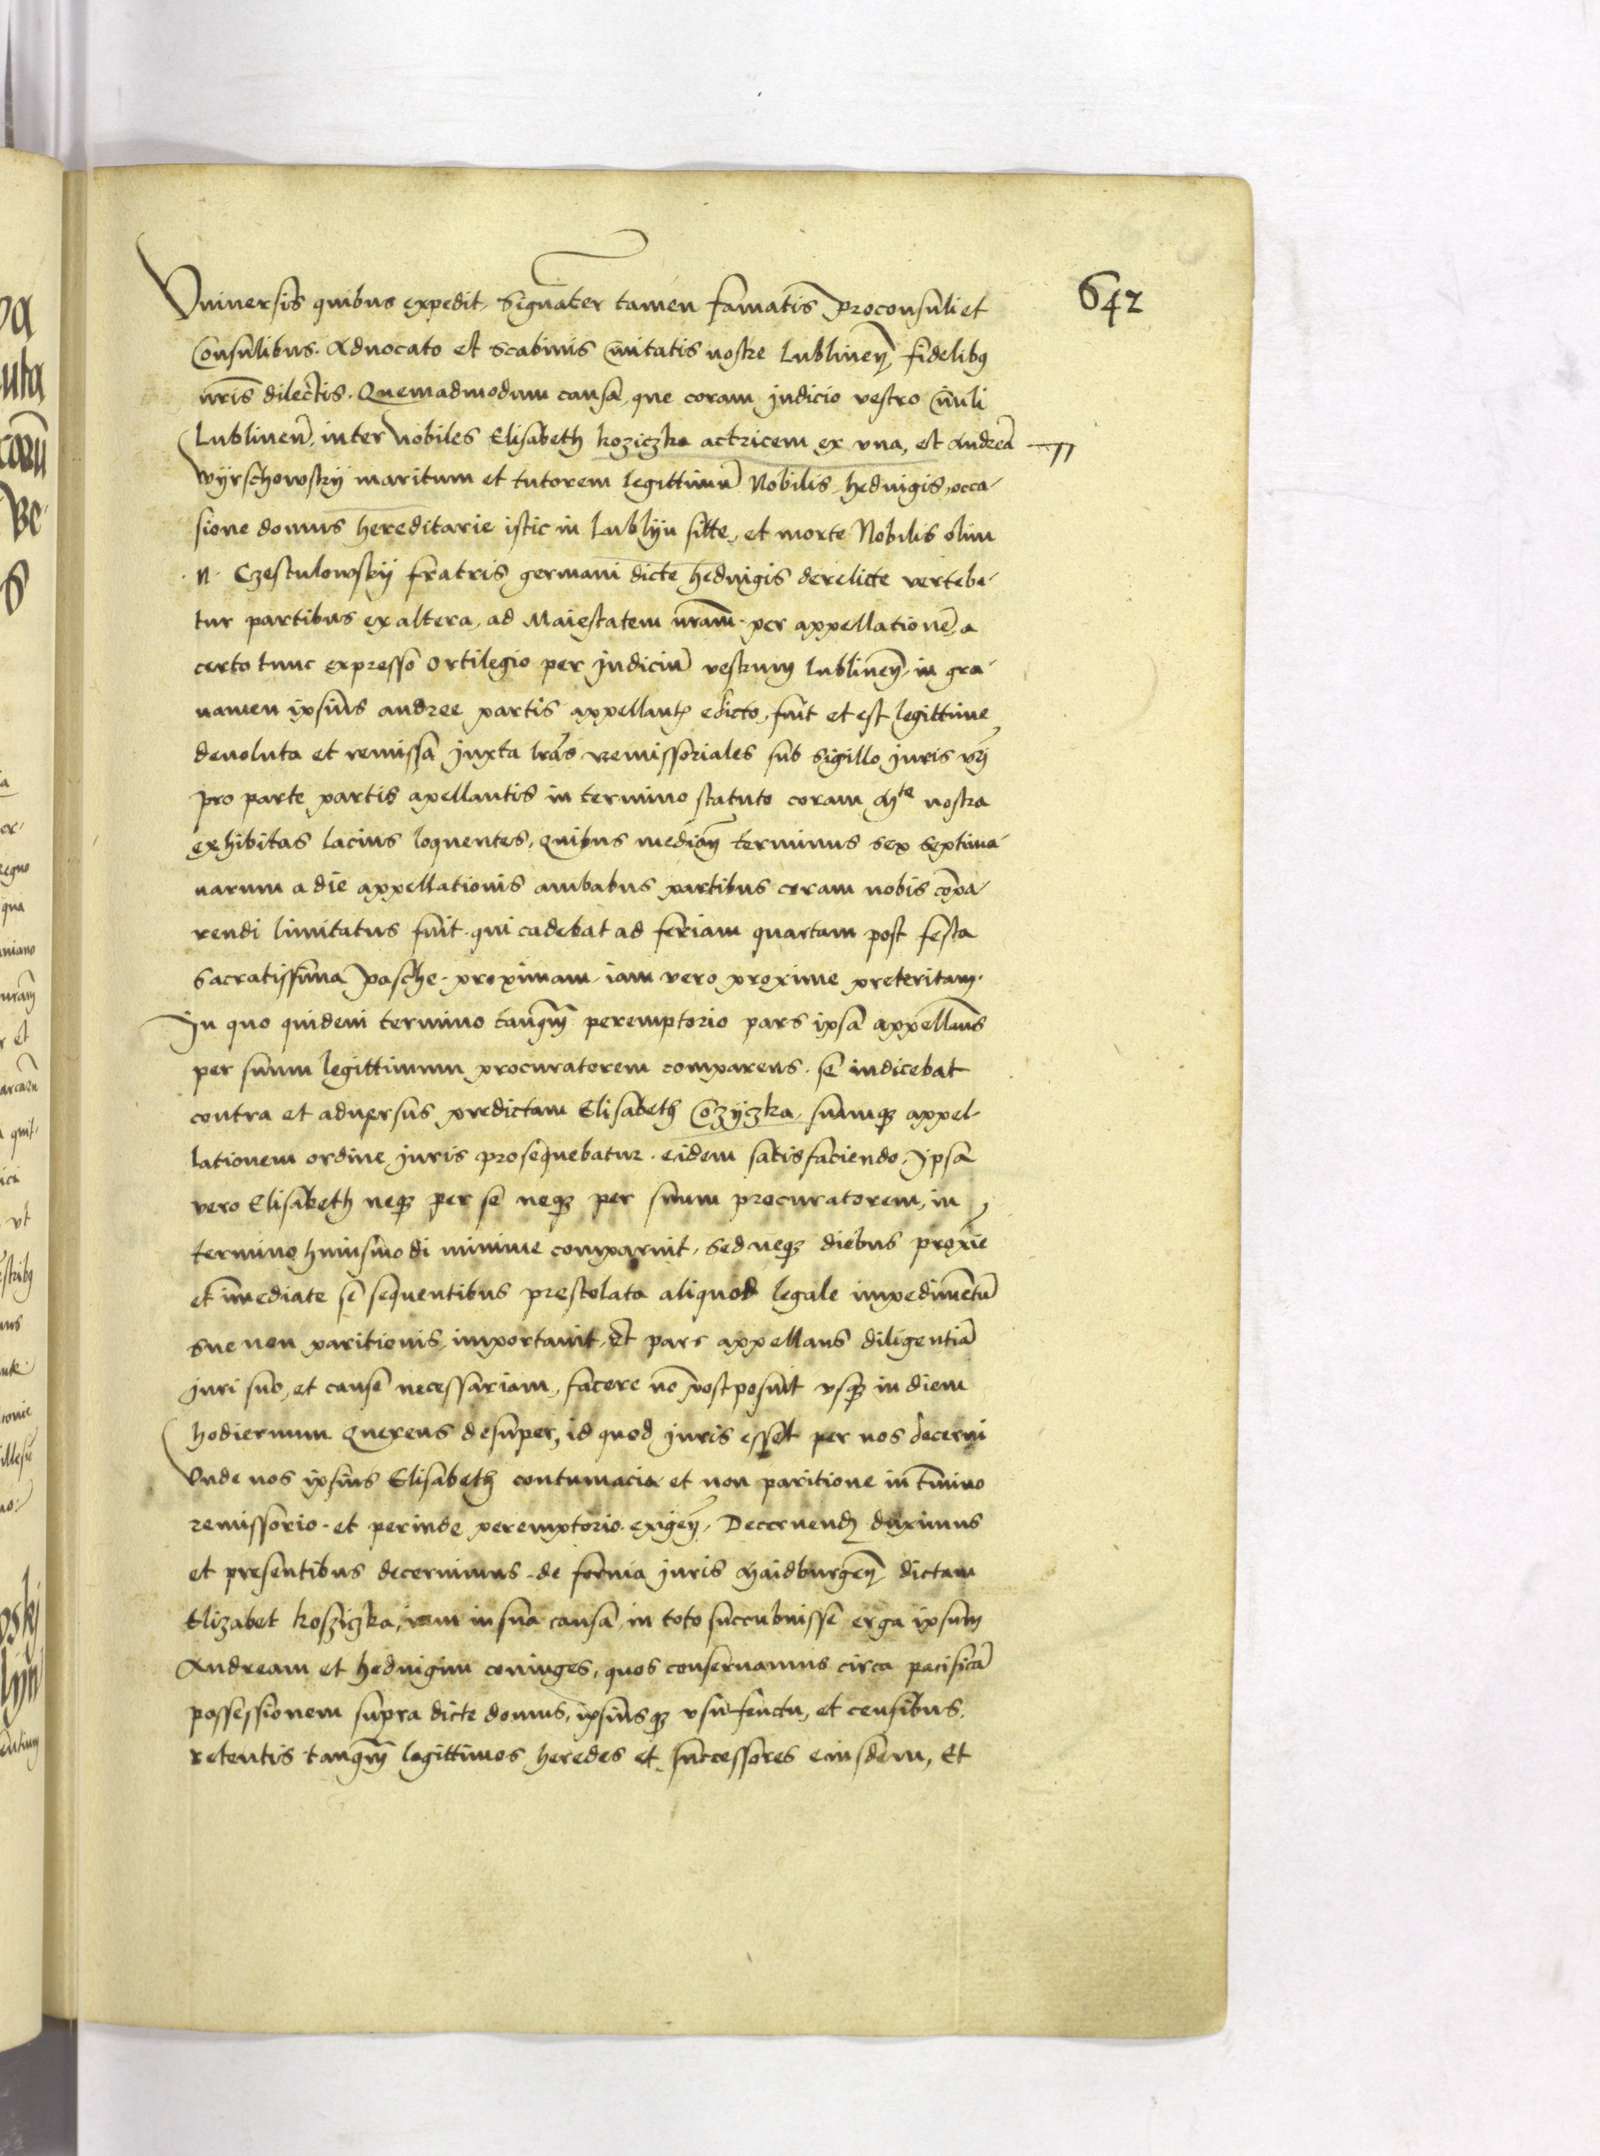 642
Vniuersis quibus expedit, Signater tamen famatis Proconsuli et
Consulibus. Aduocato et Scabinis Ciuitatis nostre Lublinen̄ fidelibꝯ
nr̄is dilectis. Quemadmodum causa, que coram Judicio vestro Ciuili
Lublinen̄, inter Nobiles Elisabeth koziczka actricem ex vna, et Andreā
Wyrschowskij maritum et tutorem legittimū Nobilis hedwigis, occa-
sione domus hereditarie istic in Lublijn sitte, et morte Nobilis olim
.N. Czestulowskij fratris germani dicte hedwigis derelicte verteba-
tur partibus ex altera, ad Maiestatem nr̄am per appellationē, a
certo tunc expresso Ortilegio per Judiciū vestrum Lublinen̄ in gra-
uamen ipsius andree partis appellantꝭ edicto, fuit et est legittime
deuoluta et remissa juxta lr̄as remissoriales sub sigillo juris vr̄i
pro parte partis apellantis in termino statuto coram Mᵗᵉ nostra
exhibitas lacius loquentes, Quibus median̄ terminus sex septima-
narum a die appellationis ambabus partibus coram nobis cōpa-
rendi limitatus fuit. qui cadebat ad feriam quartam post festa
sacratissima Pasche. proximam. iam vero proxime preteritam.
In quo quidem termino tanqm̄ peremptorio pars ipsa appellans
per suum legittimum procuratorem comparens. se indicebat
contra et aduersus predictam Elisabeth Cozyczka. suamqꝫ appel-
lationem ordine juris prosequebatur. eidem satisfaciendo. Ipsa
vero Elisabeth neqꝫ per se neqꝫ per suum procuratorem, in
termino huiusmodi minime comparuit, sed neqꝫ diebus proxīe
et īmediate se sequentibus prestolata aliquod legale impedimētū
sue non paritionis, importauit, Et pars appellans diligentiā
juri suo, et cause necessariam, facere nō postposuit vsqꝫ in diem
hodiernum Querens desuper, id quod juris esset per nos decerni
Vnde nos ipsius Elisabeth contumacia et non paritione in tm̄ino
remissorio. et perinde peremptorio. exigen̄, Decernendꝫ duximus
et presentibus decernimus. de forma juris Maidburgen̄ dictam
Elizabet koziczka, iam in sua causa in toto succubuisse erga ipsum
Andream et heduigim coniuges, quos conseruamus circa pacificā
possessionem supra dicte domus, ipsiusqꝫ vsufructu, et censibus
retentis tanqm̄ legittimos heredes et successores eiusdem, Et